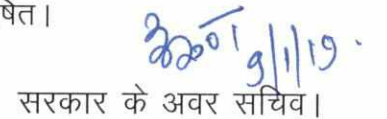 षेत।
9/1/19.
सरकार के अवर सचिव।